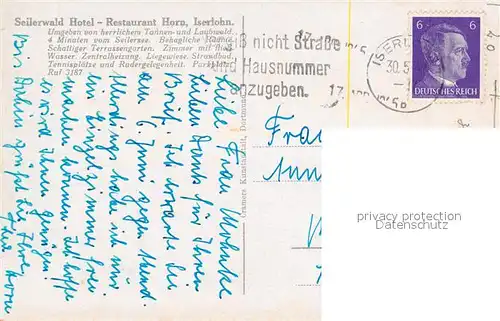 Seilerwald Hotel - Restaurant Horn, Iserlohn.
Umgeben von herrlichem Tannen- und Laubwald.
4 Minuten vom Seilersee. Behagliche Räume.
Schattiger Terrassengarten. Zimmer mit fließ.
Wasser. Zentralheizung. Liegewiese. Strandbad.
Tennisplätze und Rudergelegenheit. Parkplatz
Ruf 3187
nicht Straße
und Hausnummer
anzugeben.
30.5
6 6
DEUTSCHES REICH
Cramers Kunstanstalt, Dortmund
Liebe Frau
Lieben Dank für Ihren
Brief. Ich erwarte Sie
am 6. Juni gegen Abend.
Allerdings habe ich nur
ein Einzelzimmer frei.
Ich hoffe
es wird Ihnen genügen.
Bis dahin grüßt Sie Ihre
Frau
privacy protection
Datenschutz